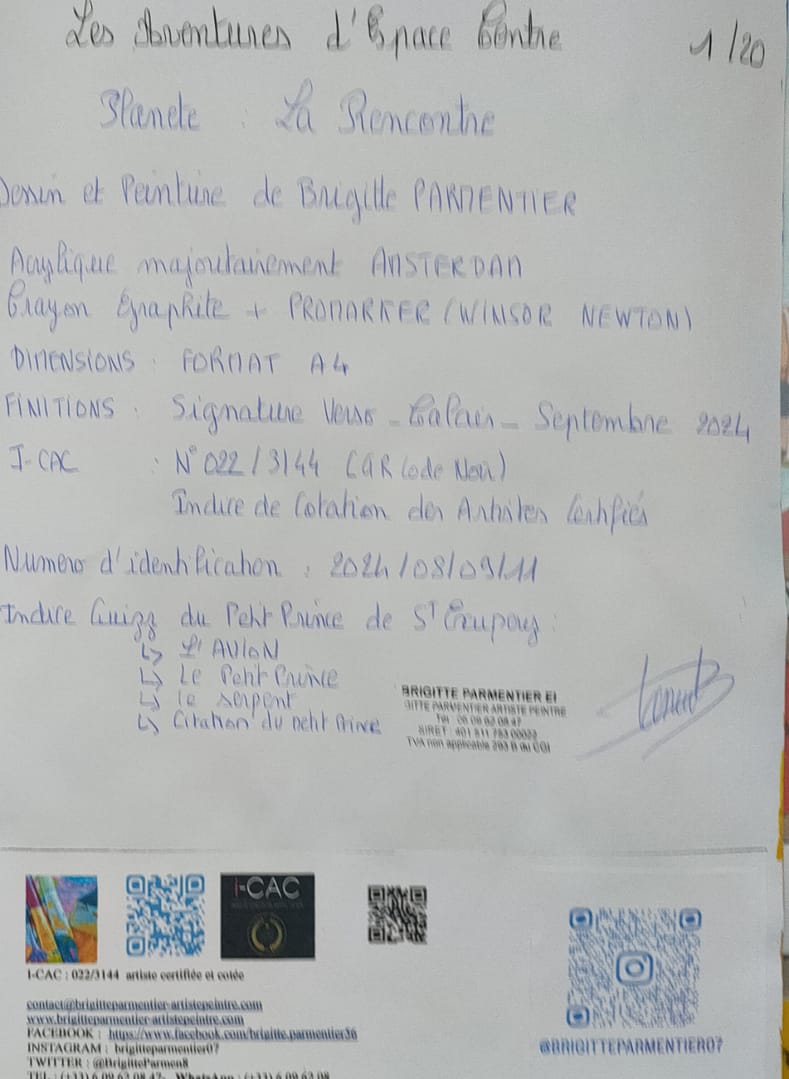 Les Aventures d'Espace Centre 1/20
Planete : La Rencontre
Dessin et Peinture de Brigitte PARMENTIER
Acrylique majoritairement AMSTERDAM
Crayon Graphite + PROMARKER (WINSOR NEWTON)
DIMENSIONS : FORMAT A4
FINITIONS : Signature Verso - Calais - Septembre 2024
I-CAC : N° 022/3144 (QR Code Noir)
Indice de Cotation des Artistes Certifiés
Numero d'identification : 2024/08/09/11
Indice Quizz du Petit Prince de St Exupery :
↳ L'AVION
↳ Le Petit Prince
↳ le serpent
↳ Citation du petit Prince
BRIGITTE PARMENTIER EI
GITTE PARMENTIER ARTISTE PEINTRE
TVA non applicable 293 B du CGI
I-CAC
I-CAC : 022/3144 artiste certifiée et cotée
contact@brigitteparmentier-artistepeintre.com
www.brigitteparmentier-artistepeintre.com
FACEBOOK : https://www.facebook.com/brigitte.parmentier56
INSTAGRAM : brigitteparmentier07
TWITTER : @BrigitteParmen8
@BRIGITTEPARMENTIER07